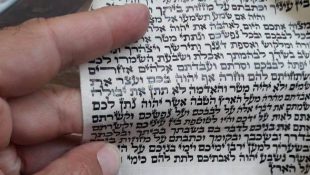 בין עיניך
והיה אם שמע תשמעו אל
אתכם היום לאהבה את
בכל לבבכם ובכל נפשכם
ומלקוש ואספת דגנך ותירשך ויצהרך
בשדך לבהמתך ואכלת ושבעת השמרו לכם
יפתה לבבכם וסרתם ועבדתם אלהים אחרים
והשתחויתם להם וחרה אף יהוה בכם ועצר את
השמים ולא יהיה מטר והאדמה לא תתן את יבולה
ואבדתם מהרה מעל הארץ הטבה אשר יהוה נתן לכם
ושמתם את דברי אלה על לבבכם ועל נפשכם וקשרתם
אתם לאות על ידכם והיו לטוטפת בין עיניכם
אתם את בניכם לדבר בם בשבתך בביתך
ובשכבך ובקומך וכתבתם על מזוזות
ובשעריך למען ירבו ימיכם וימי בניכם על
אשר נשבע יהוה לאבתיכם לתת להם כימי
על הארץ